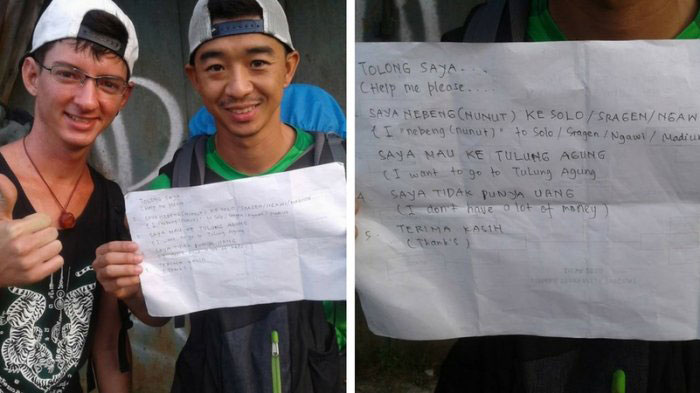 TOLONG SAYA....
(Help me please....
SAYA NEBENG (NUNUT) KE SOLO / SRAGEN / NGAW
( I "nebeng (nunut)" to Solo / Sragen / Ngawi / Madiun
SAYA MAU KE TULUNG AGUNG
( I want to go to Tulung Agung
SAYA TIDAK PUNYA UANG
( I don't have a lot of money )
5. TERIMA KASIH
( Thank's )